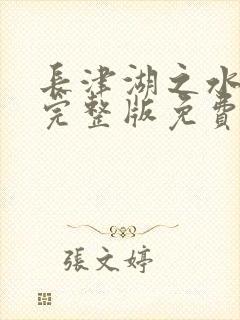 長津湖之水
完整版免費
張文婷